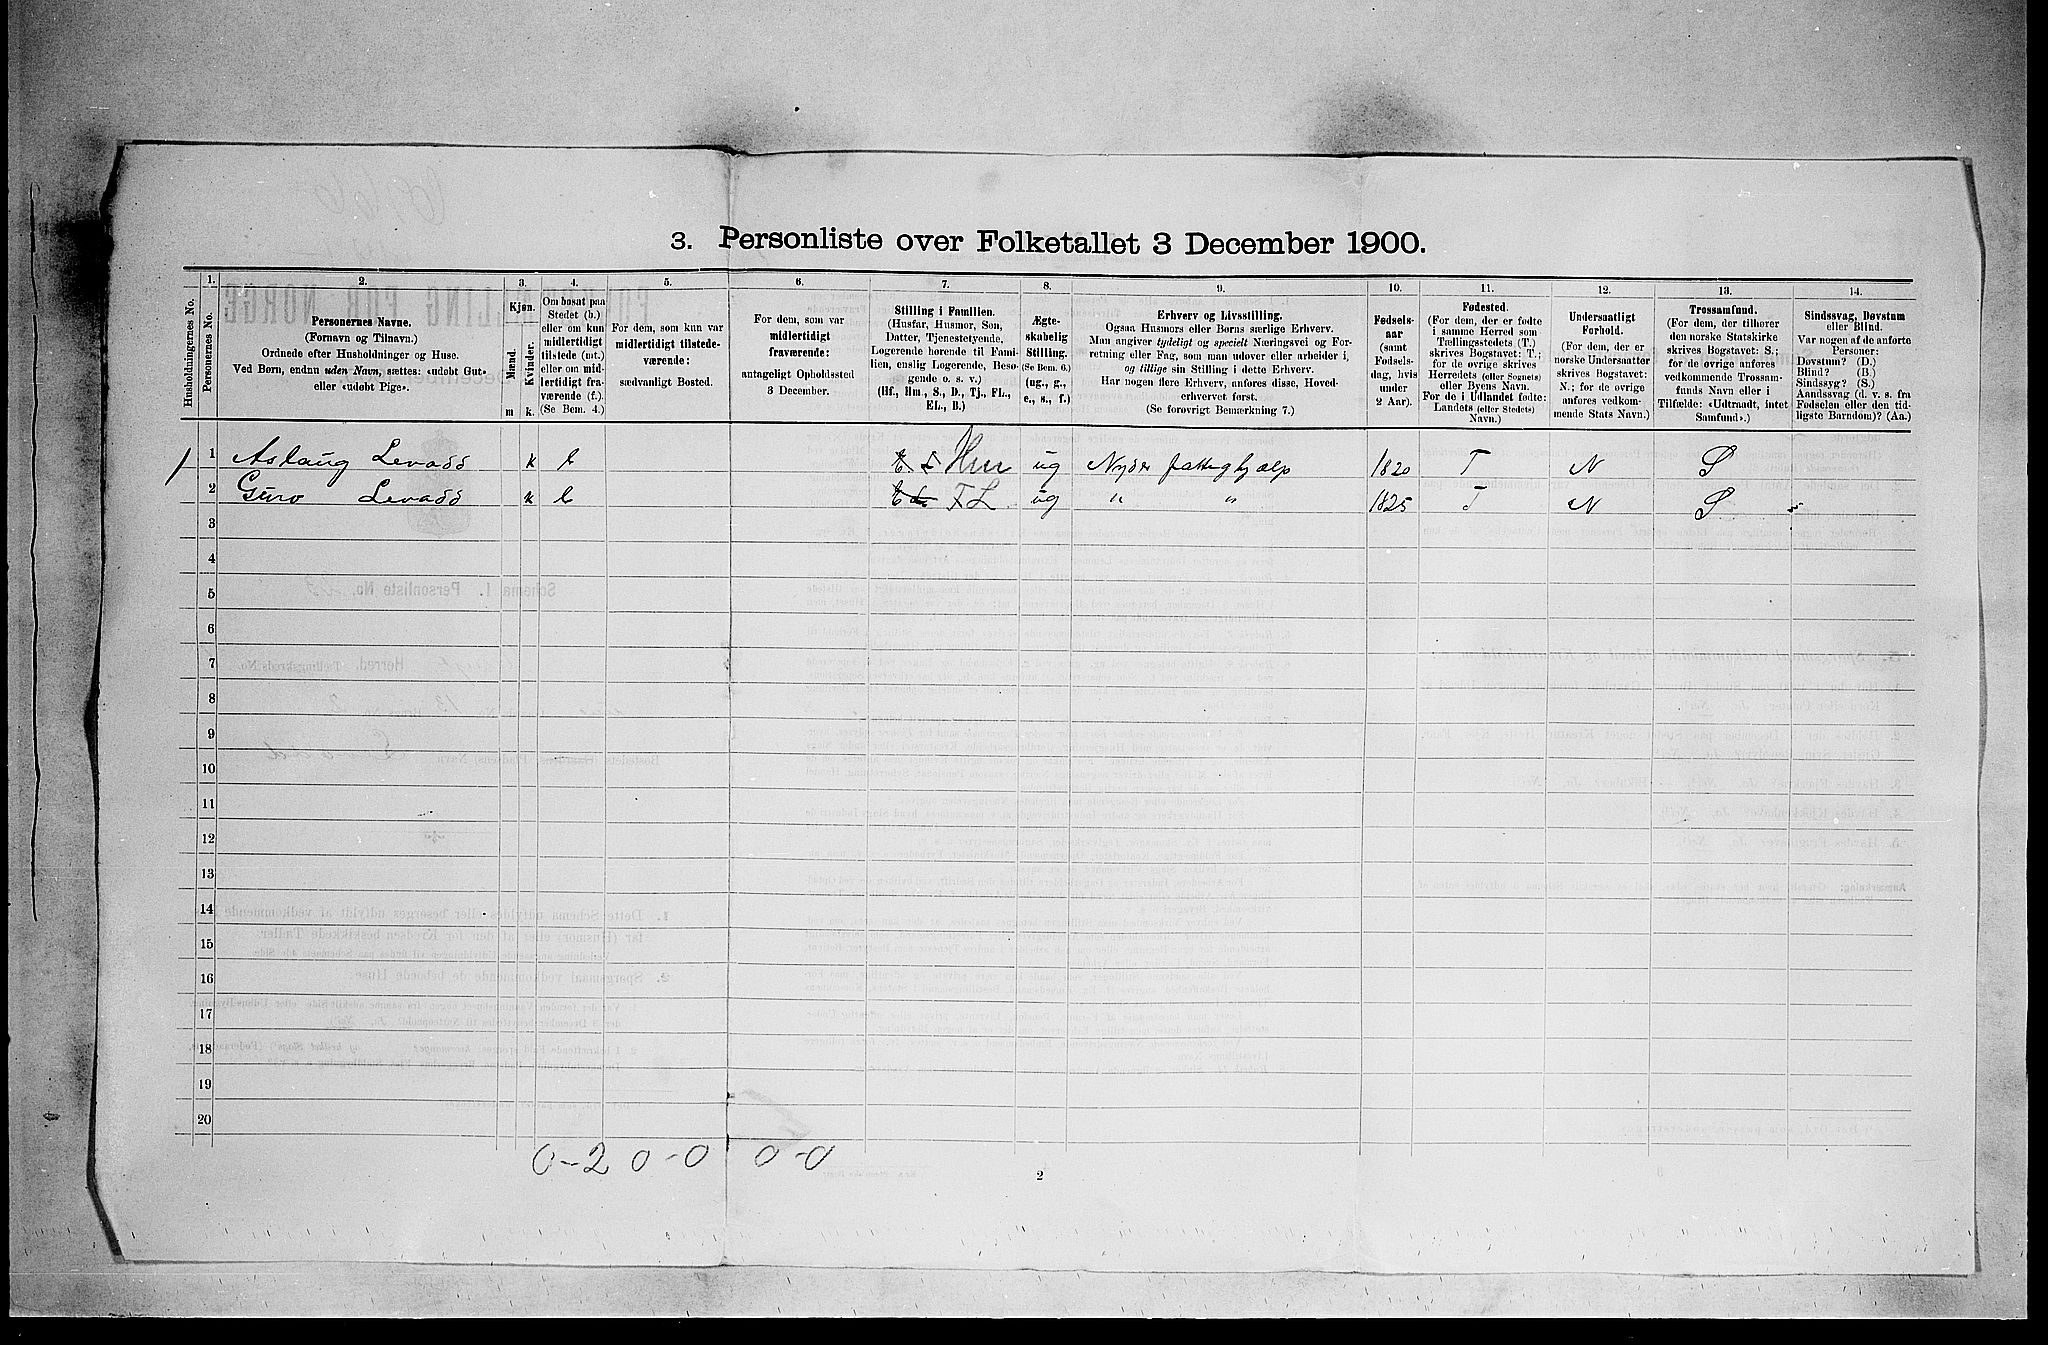 3. Personliste over Folketallet 3 December 1900.
Husholdningernes No.
1.
Personernes No.
2.
Personernes Navne.
(Fornavn og Tilnavn.)
Ordnede efter Husholdninger og Huse.
Ved Børn, endnu uden Navn, sættes: «udøbt Gut»
eller «udøbt Pige».
3.
Kjøn.
Mænd.
Kvinder.
m k.
4.
Om bosat paa
Stedet (b.)
eller om kun
midlertidigt
tilstede (mt.)
eller om mid-
lertidigt fra-
værende (f.).
(Se Bem. 4.)
5.
For dem, som kun var
midlertidigt tilstede-
værende:
sædvanligt Bosted.
6.
For dem, som var
midlertidigt
fraværende:
antageligt Opholdssted
3 December.
7.
Stilling i Familien.
(Husfar, Husmor, Søn,
Datter, Tjenestetyende,
Logerende hørende til Fami-
lien, enslig Logerende, Besø-
gende o. s. v.)
(Hf., Hm., S., D., Tj., FL.,
EL., B.)
8.
Ægte-
skabelig
Stilling.
(Se Bem. 6.)
(ug., g.,
e., s., f.)
9.
Erhverv og Livsstilling.
Ogsaa Husmors eller Børns særlige Erhverv.
Man angiver tydeligt og specielt Næringsvei og For-
retning eller Fag, som man udover eller arbeider i,
og tillige sin Stilling i dette Erhverv.
Har nogen flere Erhverv, anføres disse, Hoved-
erhvervet først.
(Se forøvrigt Bemærkning 7.)
10.
Fødsels-
aar
(samt
Fødsels-
dag, hvis
under
2 Aar).
11.
Fødested.
(For dem, der er fødte
i samme Herred som
Tællingsstedets (T.)
skrives Bogstavet: T.;
for de øvrige skrives
Herredets (eller Sognets)
eller Byens Navn.
For de i Udlandet fødte:
Landets (eller Stedets)
Navn.)
12.
Undersaatligt
Forhold.
(For dem, der er
norske Undersaatter
skrives Bogstavet:
N.; for de øvrige
anføres vedkom-
mende Stats Navn.)
13.
Trossamfund.
(For dem, der tilhører
den norske Statskirke
skrives Bogstavet: S.;
for de øvrige anføres
vedkommende Trossam-
funds Navn eller i
Tilfælde: «Udtraadt, intet
Samfund».)
14.
Sindssvag, Døvstum
eller Blind.
Var nogen af de anførte
Personer:
Døvstum? (D.)
Blind? (B.)
Sindssyg? (S.)
Aandssvag (d. v. s. fra
Fødselen eller den tid-
ligste Barndom)? (Aa.)
1 1 Aslaug Levaas k b Hm ug Nyder fattighjælp 1820 T N S
2 Guro Levaas k b FL ug " " 1825 T N S
3
4
5
6
7
8
9
10
11
12
13
14
15
16
17
18
19
20
0-2 0-0 0-0
2